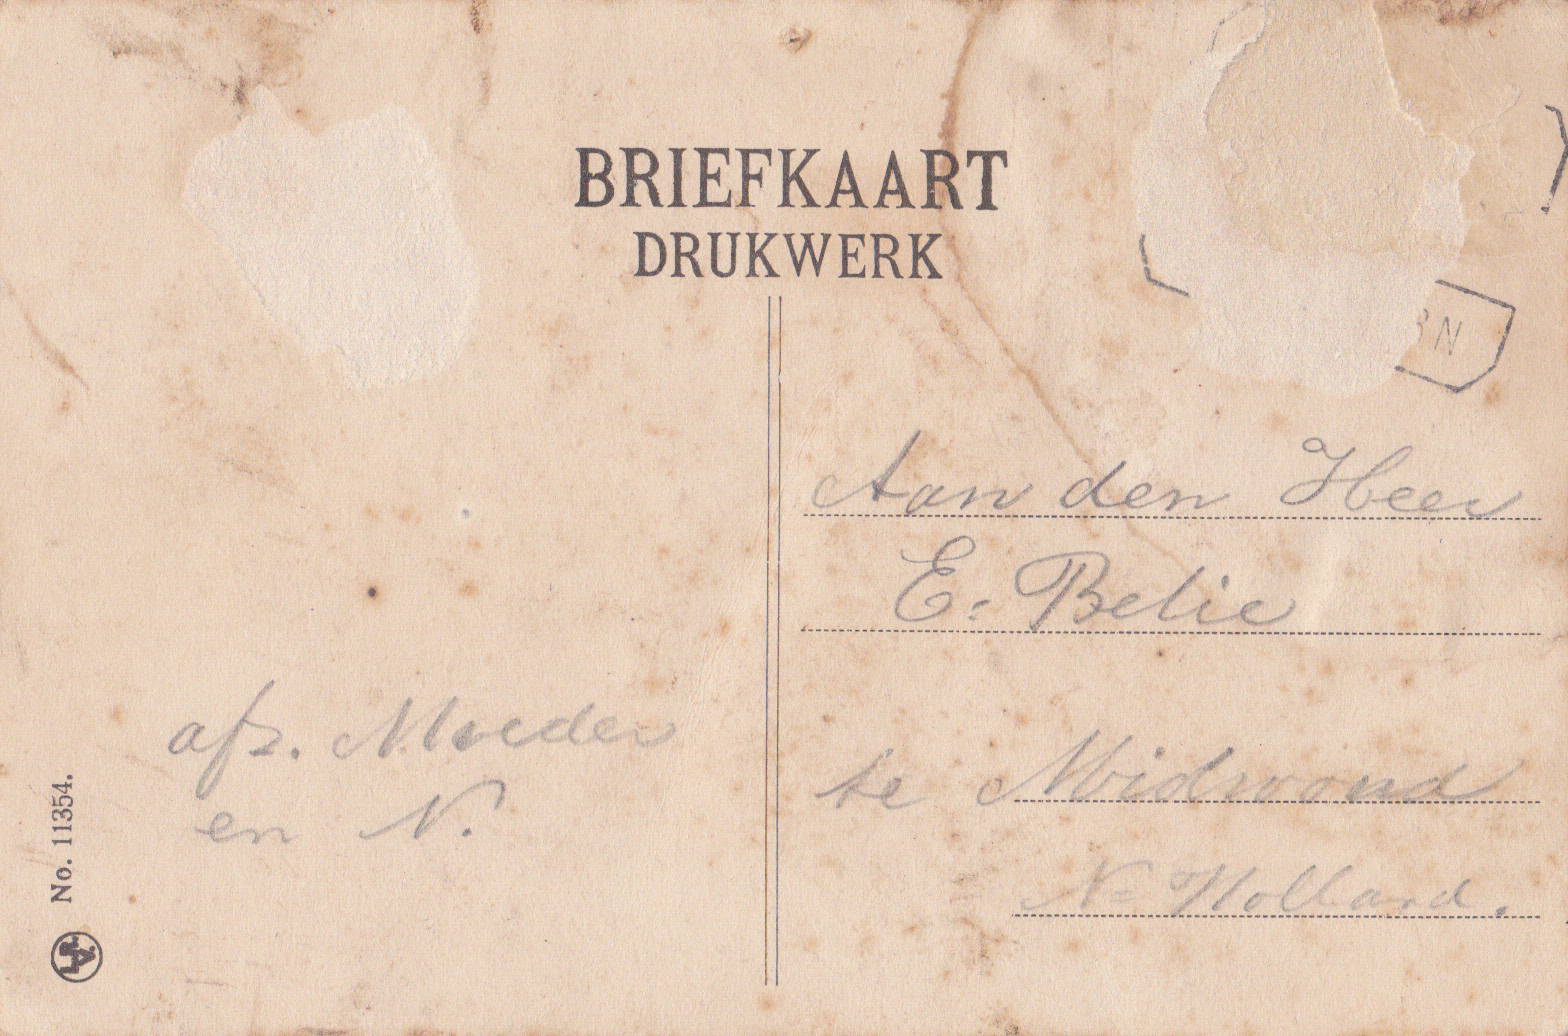 BRIEFKAART
DRUKWERK
Aan den Heer
E. Belie
te Midwoud
N= Holland.
afz. Moeder
en N.
No. 11354.